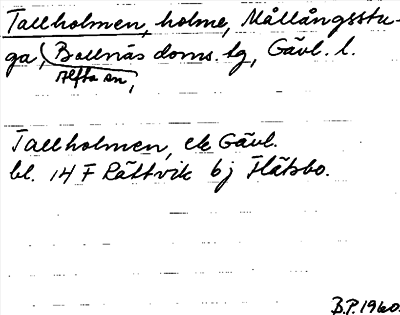 Tallholmen, holme, Mållångsstu-
ga, Bollnäs doms. lg, Gävl. l.
Alfta sn,
Tallholmen, ek Gävl.
bl. 14 F Rättvik bj Flätsbo.
B.P. 1960.